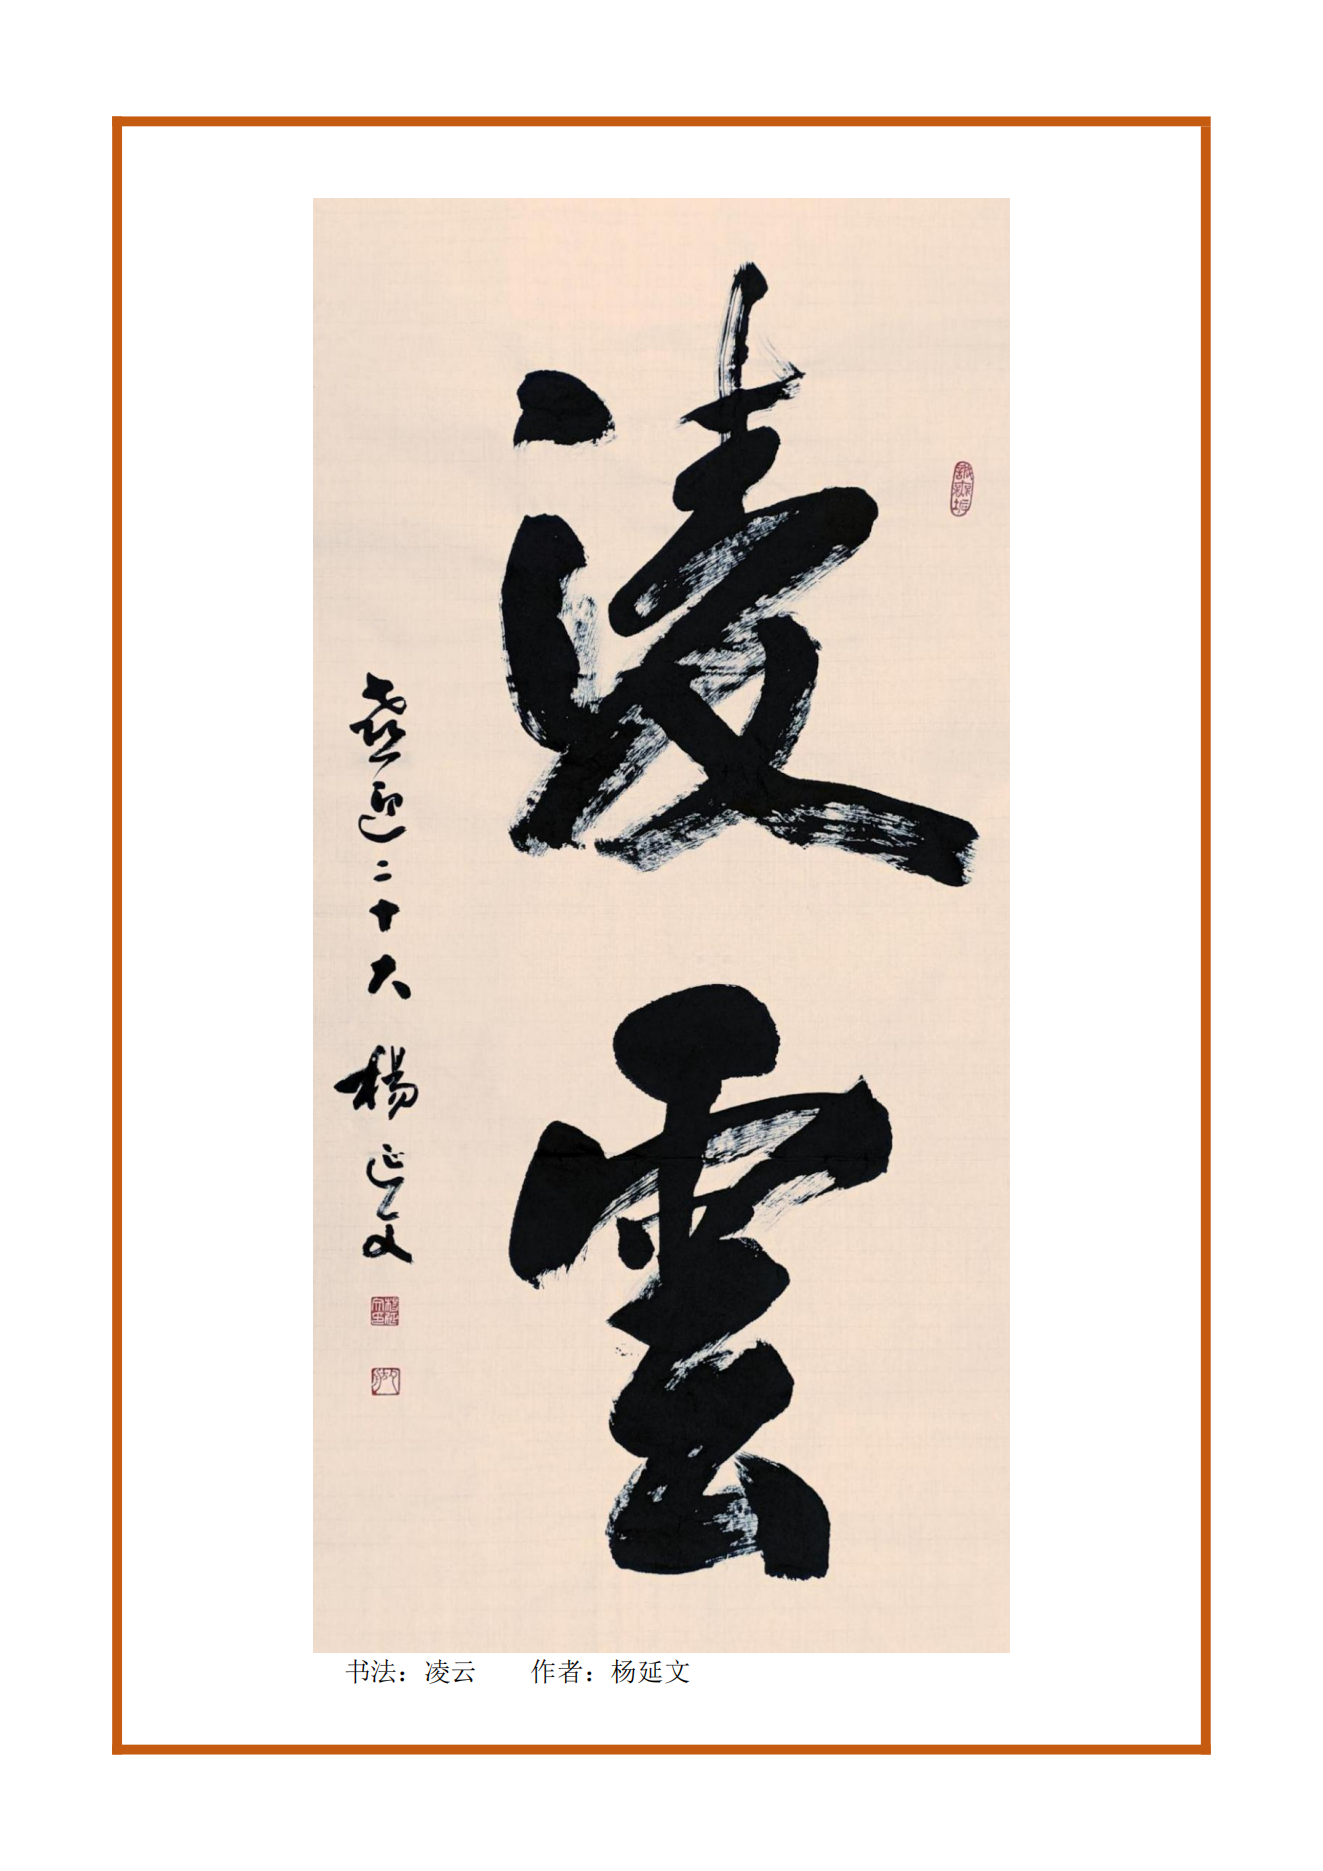 凌雲
喜迎二十大 楊延文
书法：凌云 作者：杨延文